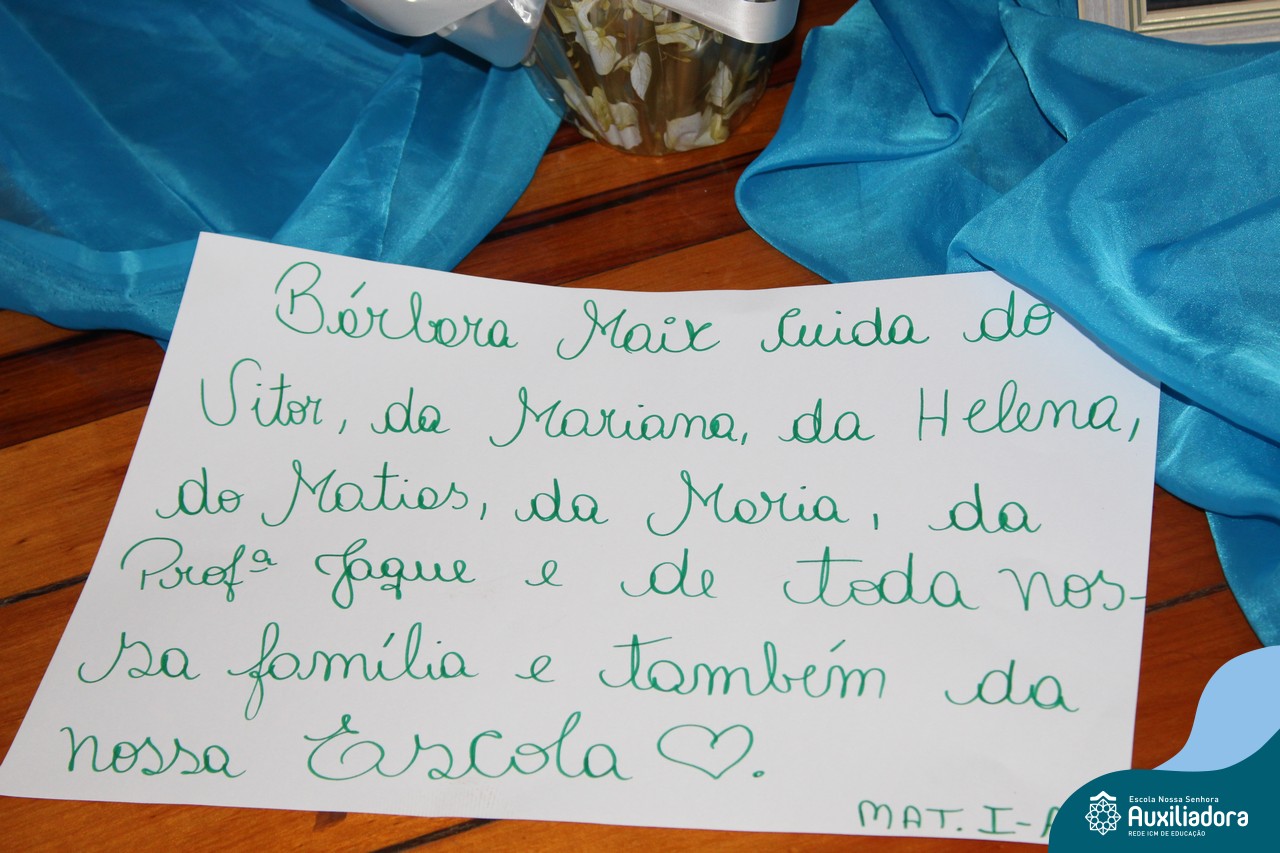 Bárbara Maix cuida do
Vitor, da Mariana, da Helena,
do Matias, da Maria, da
Profª Jaque e de toda nos-
sa família e também da
nossa Escola ♡.
MAT. I-A
Escola Nossa Senhora
Auxiliadora
REDE ICM DE EDUCAÇÃO